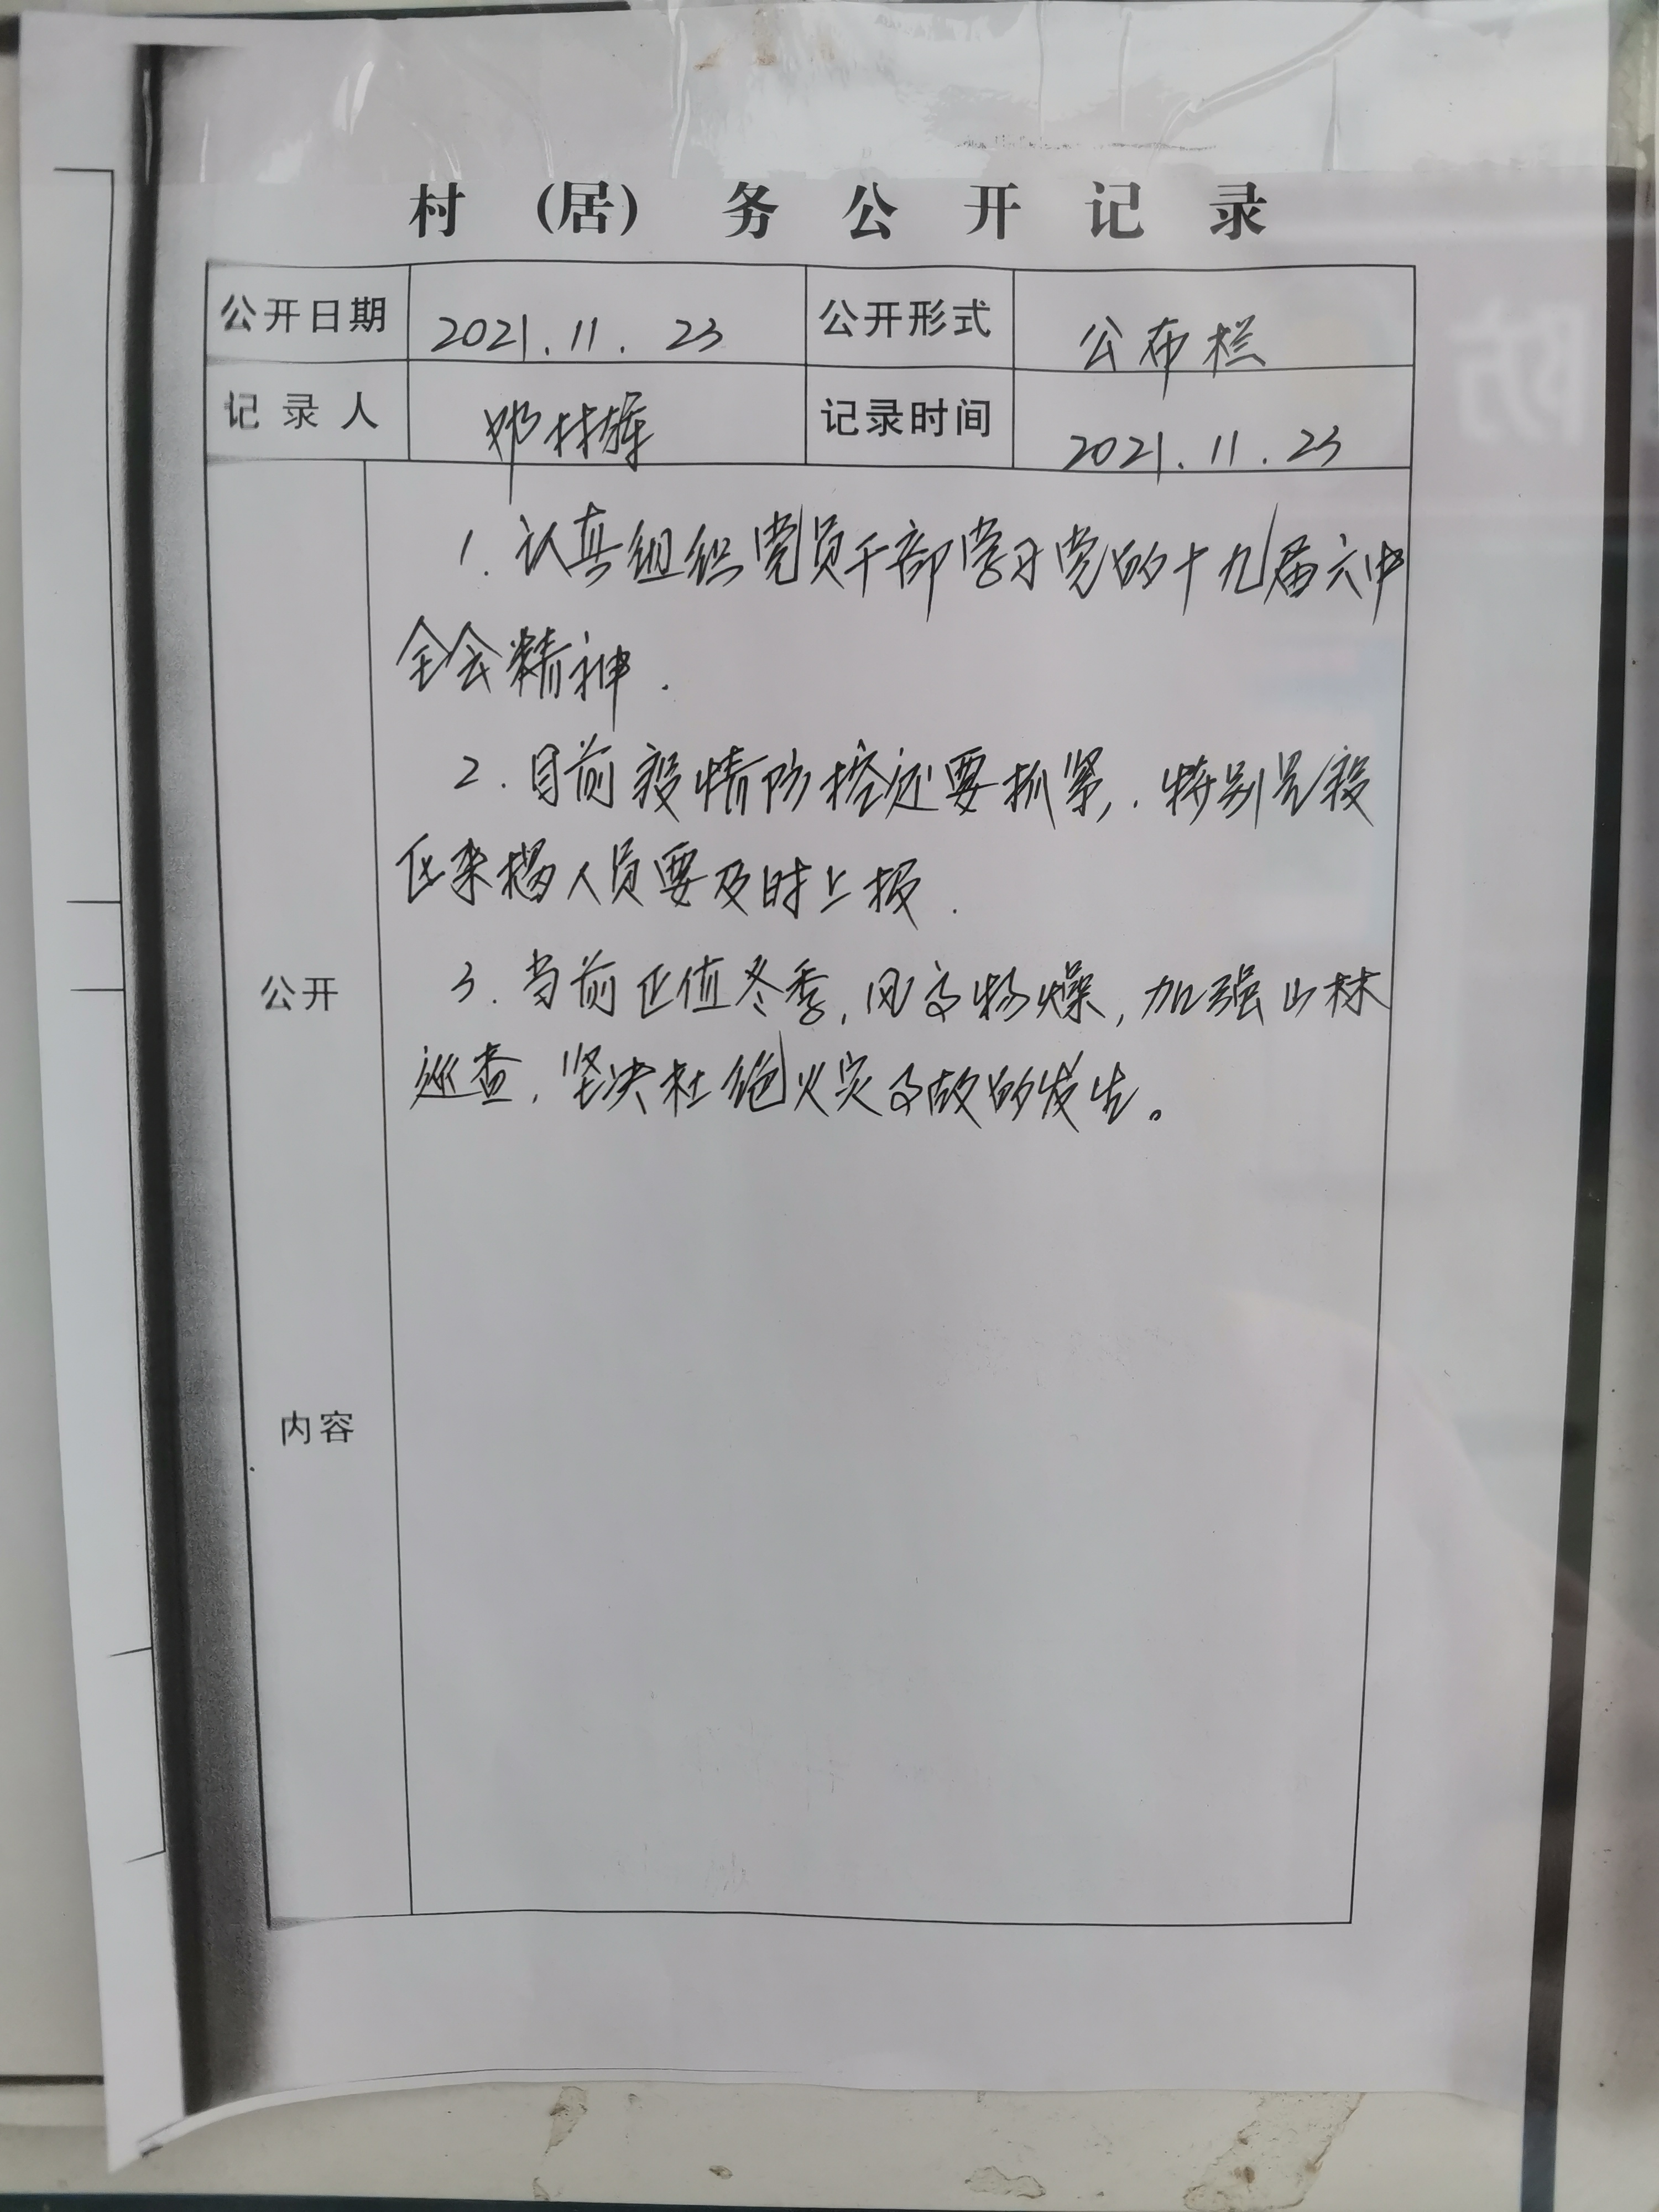 村（居）务公开记录
公开日期 2021.11.23 公开形式 公布栏
记录人 邓林辉 记录时间 2021.11.23
1.认真组织党员干部学习党的十九届六中
全会精神.
2.目前疫情防控还要抓紧,.特别是疫
区来榻人员要及时上报.
3.当前正值冬季,风高物燥,加强山林
巡查,坚决杜绝火灾事故的发生。
公开
内容
防